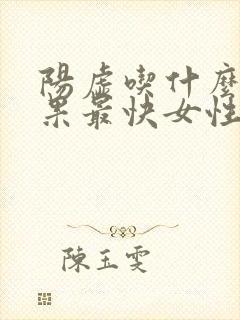 陽虛喫什麼
果最快女性
陳玉雯